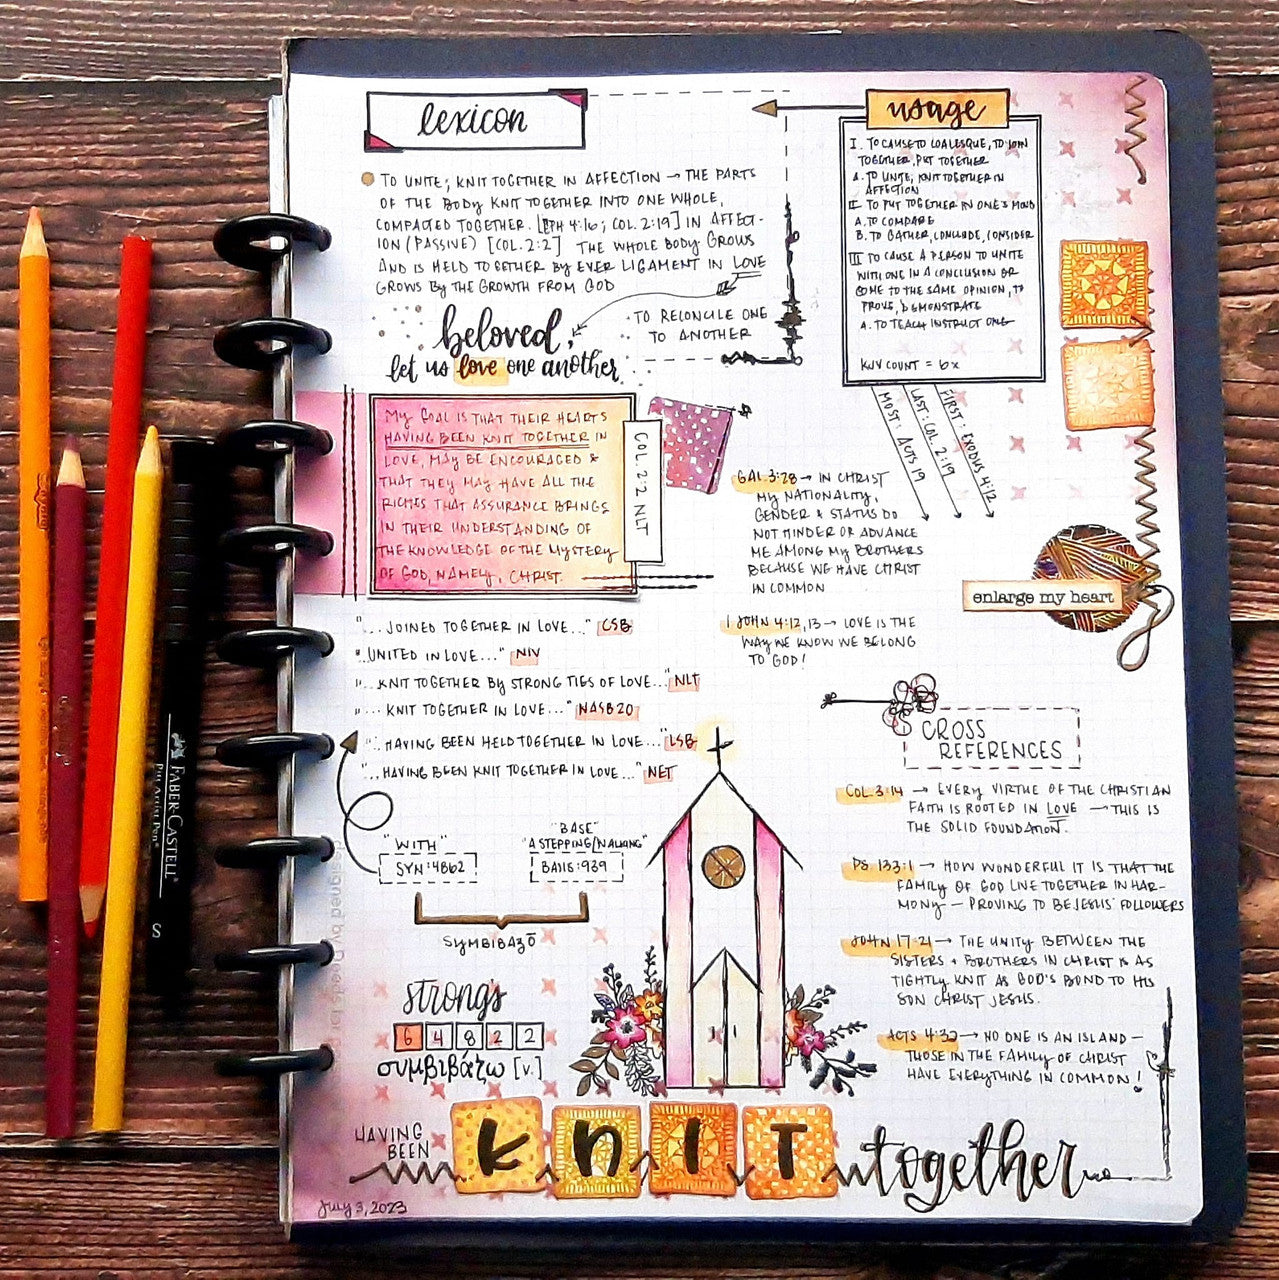 lexicon
TO UNITE; KNIT TOGETHER IN AFFECTION → THE PARTS
OF THE BODY KNIT TOGETHER INTO ONE WHOLE,
COMPACTED TOGETHER. [EPH 4:16; COL. 2:19] IN AFFECT-
ION (PASSIVE) [COL. 2:2] THE WHOLE BODY GROWS
AND IS HELD TO GETHER BY EVER LIGAMENT IN LOVE
GROWS BY THE GROWTH FROM GOD
TO RECONCILE ONE
TO ANOTHER
beloved,
let us love one another
usage
I. TO CAUSE TO COALESQUE, TO JOIN
TOGETHER, PUT TOGETHER
A. TO UNITE, KNIT TOGETHER IN
AFFECTION
II TO PUT TOGETHER IN ONE'S MIND
A. TO COMPARE
B. TO GATHER, CONCLUDE, CONSIDER
III TO CAUSE A PERSON TO UNITE
WITH ONE IN A CONCLUSION OR
COME TO THE SAME OPINION, TO
PROVE, DEMONSTRATE
A. TO TEACH INSTRUCT ONE
KJV COUNT = 6x
MOST: ACTS 19
LAST: COL. 2:19
FIRST: EXODUS 4:12
MY GOAL IS THAT THEIR HEARTS
HAVING BEEN KNIT TOGETHER IN
LOVE, MAY BE ENCOURAGED &
THAT THEY MAY HAVE ALL THE
RICHES THAT ASSURANCE BRINGS
IN THEIR UNDERSTANDING OF
THE KNOWLEDGE OF THE MYSTERY
OF GOD, NAMELY, CHRIST.
COL. 2:2 NLT
GAL 3:28 → IN CHRIST
MY NATIONALITY,
GENDER & STATUS DO
NOT HINDER OR ADVANCE
ME AMONG MY BROTHERS
BECAUSE WE HAVE CHRIST
IN COMMON
1 JOHN 4:12,13 → LOVE IS THE
WAY WE KNOW WE BELONG
TO GOD!
enlarge my heart
"...JOINED TOGETHER IN LOVE..." CSB
"..UNITED IN LOVE..." NIV
"...KNIT TOGETHER BY STRONG TIES OF LOVE..." NLT
"... KNIT TOGETHER IN LOVE..." NASB20
"...HAVING BEEN HELD TOGETHER IN LOVE..." LSB
"...HAVING BEEN KNIT TOGETHER IN LOVE..." NET
"WITH"
SYN:4862
"BASE"
"A STEPPING/WALKING"
BAIIS:939
SYMBIBAZŌ
strongs
6 4 8 2 2
συμβιβάζω [v.]
CROSS
REFERENCES
COL. 3:14 → EVERY VIRTUE OF THE CHRISTIAN
FAITH IS ROOTED IN LOVE → THIS IS
THE SOLID FOUNDATION.
PS 133:1 → HOW WONDERFUL IT IS THAT THE
FAMILY OF GOD LIVE TOGETHER IN HAR-
MONY — PROVING TO BE JESUS' FOLLOWERS
JOHN 17:21 → THE UNITY BETWEEN THE
SISTERS + BROTHERS IN CHRIST IS AS
TIGHTLY KNIT AS GOD'S BOND TO HIS
SON CHRIST JESUS.
ACTS 4:32 → NO ONE IS AN ISLAND —
THOSE IN THE FAMILY OF CHRIST
HAVE EVERYTHING IN COMMON!
HAVING
BEEN
KNIT together
July 3, 2023
FABER-CASTELL
Pitt Artist Pen
S